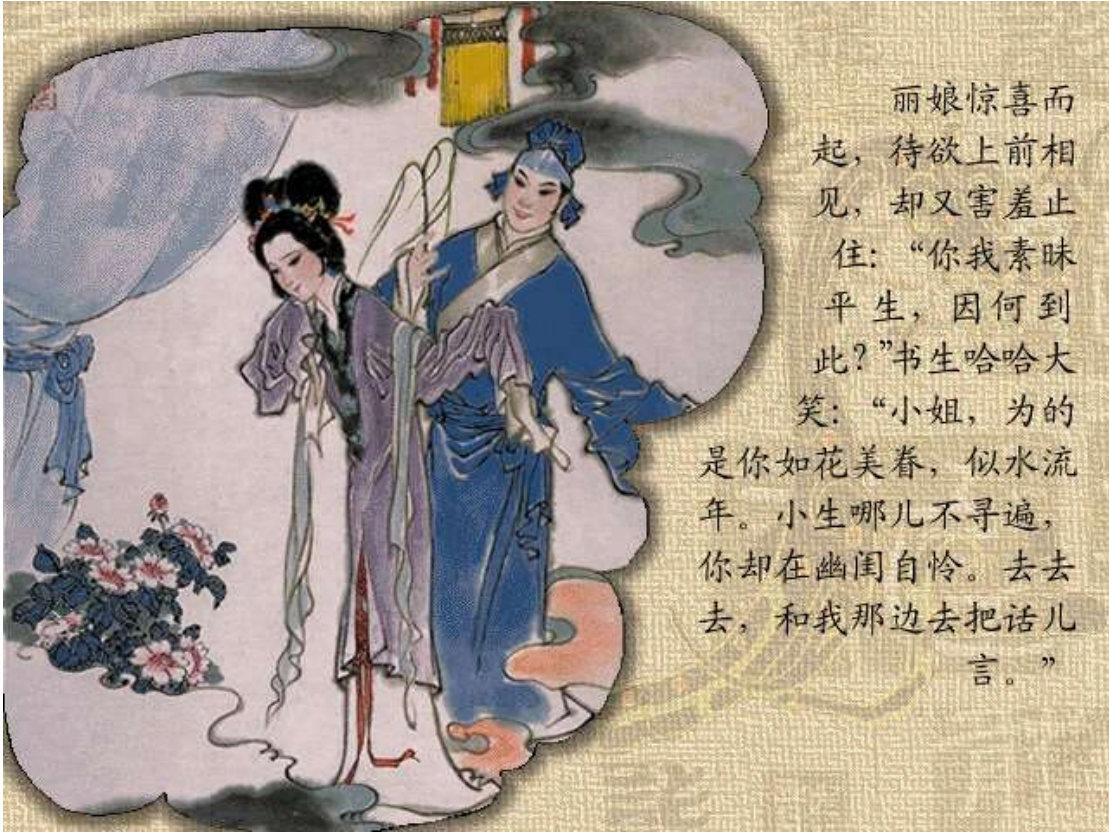 丽娘惊喜而
起，待欲上前相
见，却又害羞止
住：“你我素昧
平生，因何到
此？”书生哈哈大
笑：“小姐，为的
是你如花美眷，似水流
年。小生哪儿不寻遍，
你却在幽闺自怜。去去
去，和我那边去把话儿
言。”